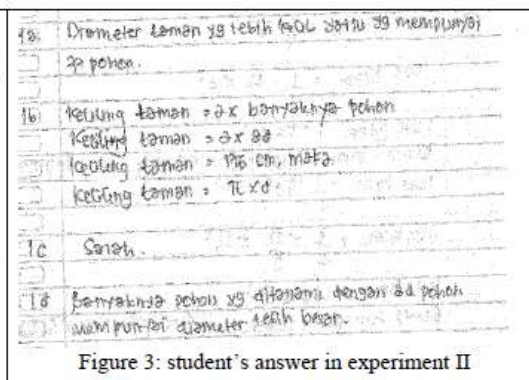 1a. Diameter taman yg lebih kecil yaitu yg mempunyai
22 pohon.
1b Keliling taman = 2 x banyaknya pohon
Keliling taman = 2 x 22
Keliling taman = cm, maka
Keliling taman = π x d
1c Salah.
1d Banyaknya pohon yg ditanami dengan 22 pohon
mempunyai diameter lebih besar.
Figure 3: student's answer in experiment II